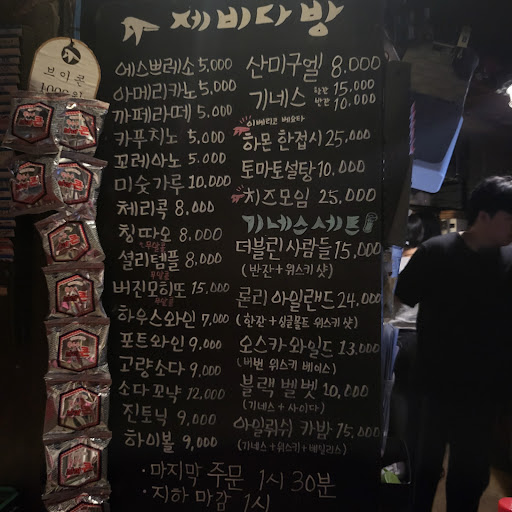 제비다방
브이콘
1000원
에스쁘레소 5,000
아메리카노 5,000
까페라떼 5,000
카푸치노 5,000
꼬레아노 5,000
미숫가루 10,000
체리콕 8,000
칭따오 8,000
무알콜
셜리템플 8,000
무알콜
버진모히또 15,000
무알콜
하우스와인 7,000
포트와인 9,000
고량소다 9,000
소다꼬냑 12,000
진토닉 9,000
하이볼 9,000
산미구엘 8,000
기네스 한잔 15,000
반잔 10,000
이베리코 베요타
하몬 한접시 25,000
토마토설탕 10,000
치즈모임 25,000
기네스 세트
더블린 사람들 15,000
(반잔+위스키 샷)
론리 아일랜드 24,000
(한잔+싱글몰트 위스키 샷)
오스카 와일드 13,000
(버번 위스키 베이스)
블랙 벨벳 10,000
(기네스+사이다)
아일뤼쉬 카밤 15,000
(기네스+위스키+베일리스)
· 마지막 주문 1시 30분
· 지하 마감 1시